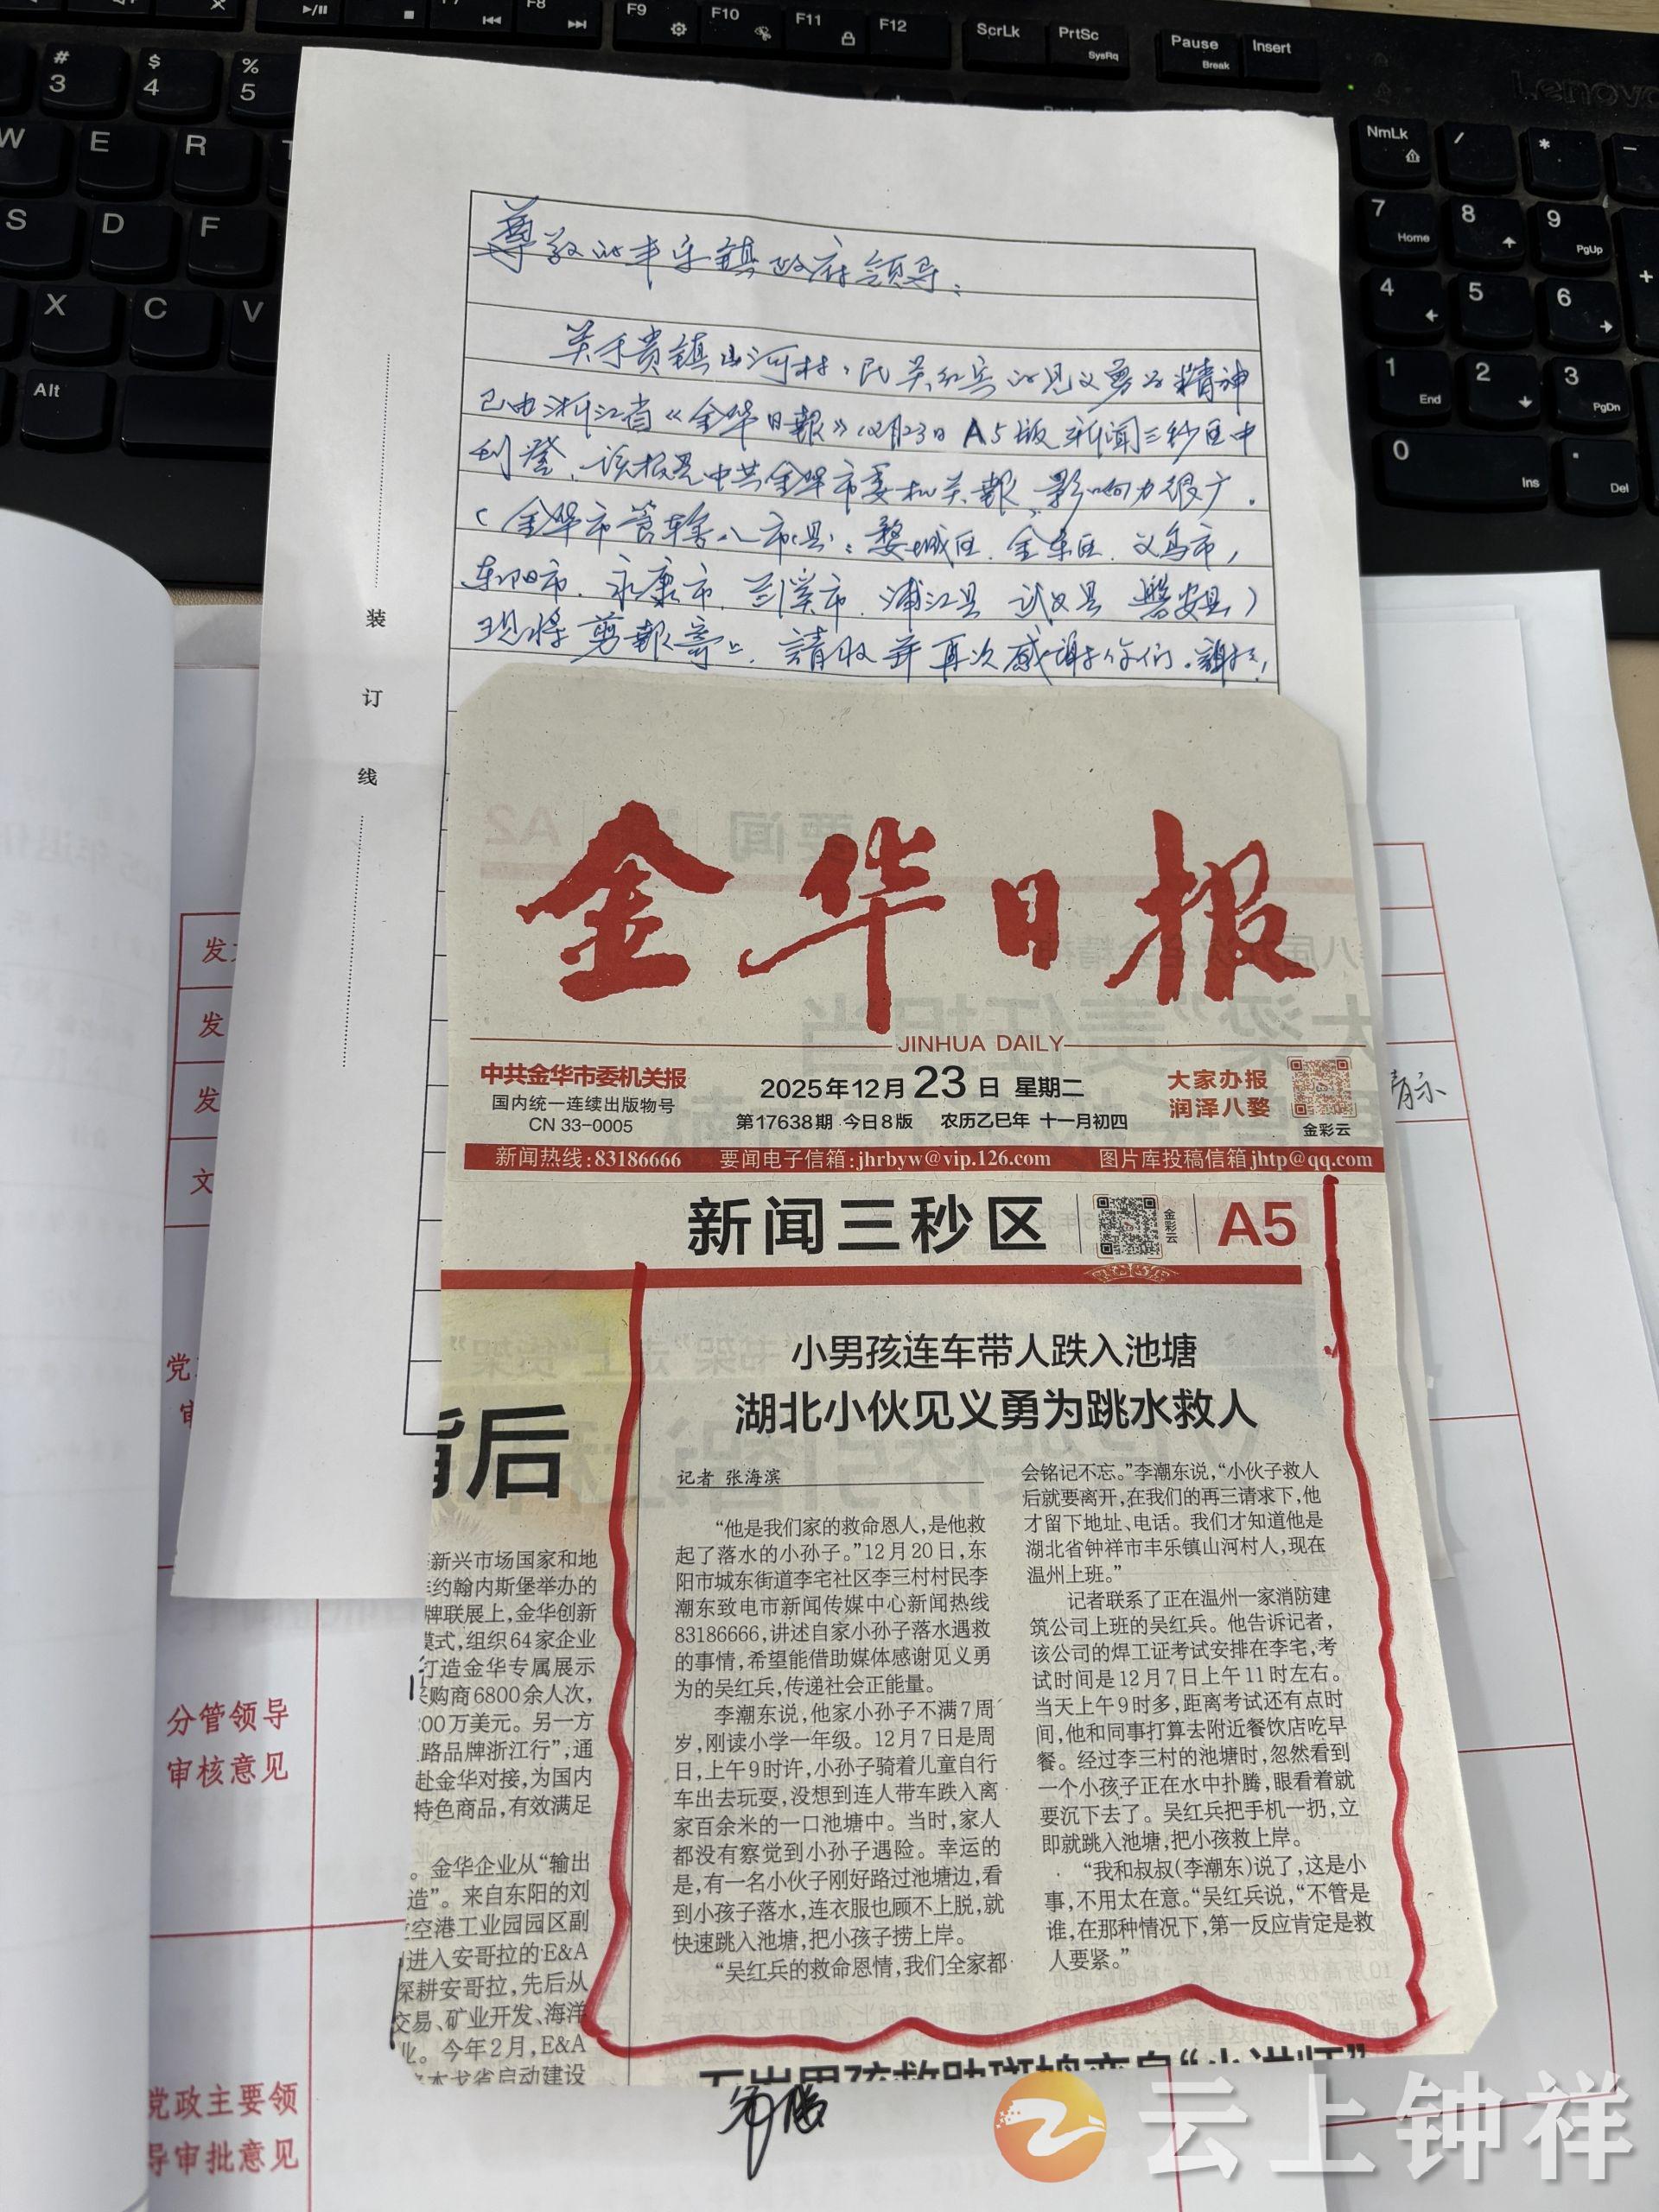 尊敬的丰乐镇政府领导：
关于贵镇山河村村民吴红兵的见义勇为精神
已由浙江省《金华日報》12月23日A5版新闻三秒区中
刊登，该报是中共金华市委机关報，影响力很广。
（金华市管辖八市（县）：婺城区、金东区、义乌市，
东阳市、永康市、兰溪市、浦江县 武义县 磐安县）
现将剪報寄上，請收并再次感谢你们。謝謝！
装
订
线
金华日报
JINHUA DAILY
中共金华市委机关报
国内统一连续出版物号
CN 33-0005
2025年12月23日 星期二
第17638期 今日8版 农历乙巳年 十一月初四
大家办报
润泽八婺
金彩云
新闻热线:83186666 要闻电子信箱:jhrbyw@vip.126.com 图片库投稿信箱jhtp@qq.com
新闻三秒区
金彩云
A5
小男孩连车带人跌入池塘
湖北小伙见义勇为跳水救人
记者 张海滨
“他是我们家的救命恩人,是他救
起了落水的小孙子。”12月20日,东
阳市城东街道李宅社区李三村村民李
潮东致电市新闻传媒中心新闻热线
83186666,讲述自家小孙子落水遇救
的事情,希望能借助媒体感谢见义勇
为的吴红兵,传递社会正能量。
李潮东说,他家小孙子不满7周
岁,刚读小学一年级。12月7日是周
日,上午9时许,小孙子骑着儿童自行
车出去玩耍,没想到连人带车跌入离
家百余米的一口池塘中。当时,家人
都没有察觉到小孙子遇险。幸运的
是,有一名小伙子刚好路过池塘边,看
到小孩子落水,连衣服也顾不上脱,就
快速跳入池塘,把小孩子捞上岸。
“吴红兵的救命恩情,我们全家都
会铭记不忘。”李潮东说,“小伙子救人
后就要离开,在我们的再三请求下,他
才留下地址、电话。我们才知道他是
湖北省钟祥市丰乐镇山河村人,现在
温州上班。”
记者联系了正在温州一家消防建
筑公司上班的吴红兵。他告诉记者,
该公司的焊工证考试安排在李宅,考
试时间是12月7日上午11时左右。
当天上午9时多,距离考试还有点时
间,他和同事打算去附近餐饮店吃早
餐。经过李三村的池塘时,忽然看到
一个小孩子正在水中扑腾,眼看着就
要沉下去了。吴红兵把手机一扔,立
即就跳入池塘,把小孩救上岸。
“我和叔叔(李潮东)说了,这是小
事,不用太在意。“吴红兵说,“不管是
谁,在那种情况下,第一反应肯定是救
人要紧。”
背后
新兴市场国家和地
约翰内斯堡举办的
牌联展上,金华创新
模式,组织64家企业
打造金华专属展示
采购商6800余人次,
00万美元。另一方
路品牌浙江行”,通
赴金华对接,为国内
特色商品,有效满足
。金华企业从“输出
造”。来自东阳的刘
空港工业园园区副
进入安哥拉的E&A
深耕安哥拉,先后从
交易、矿业开发、海洋
业。今年2月,E&A
本戈省启动建设
发
发
发
文
党
分管领导
审核意见
党政主要领
导审批意见
云上钟祥